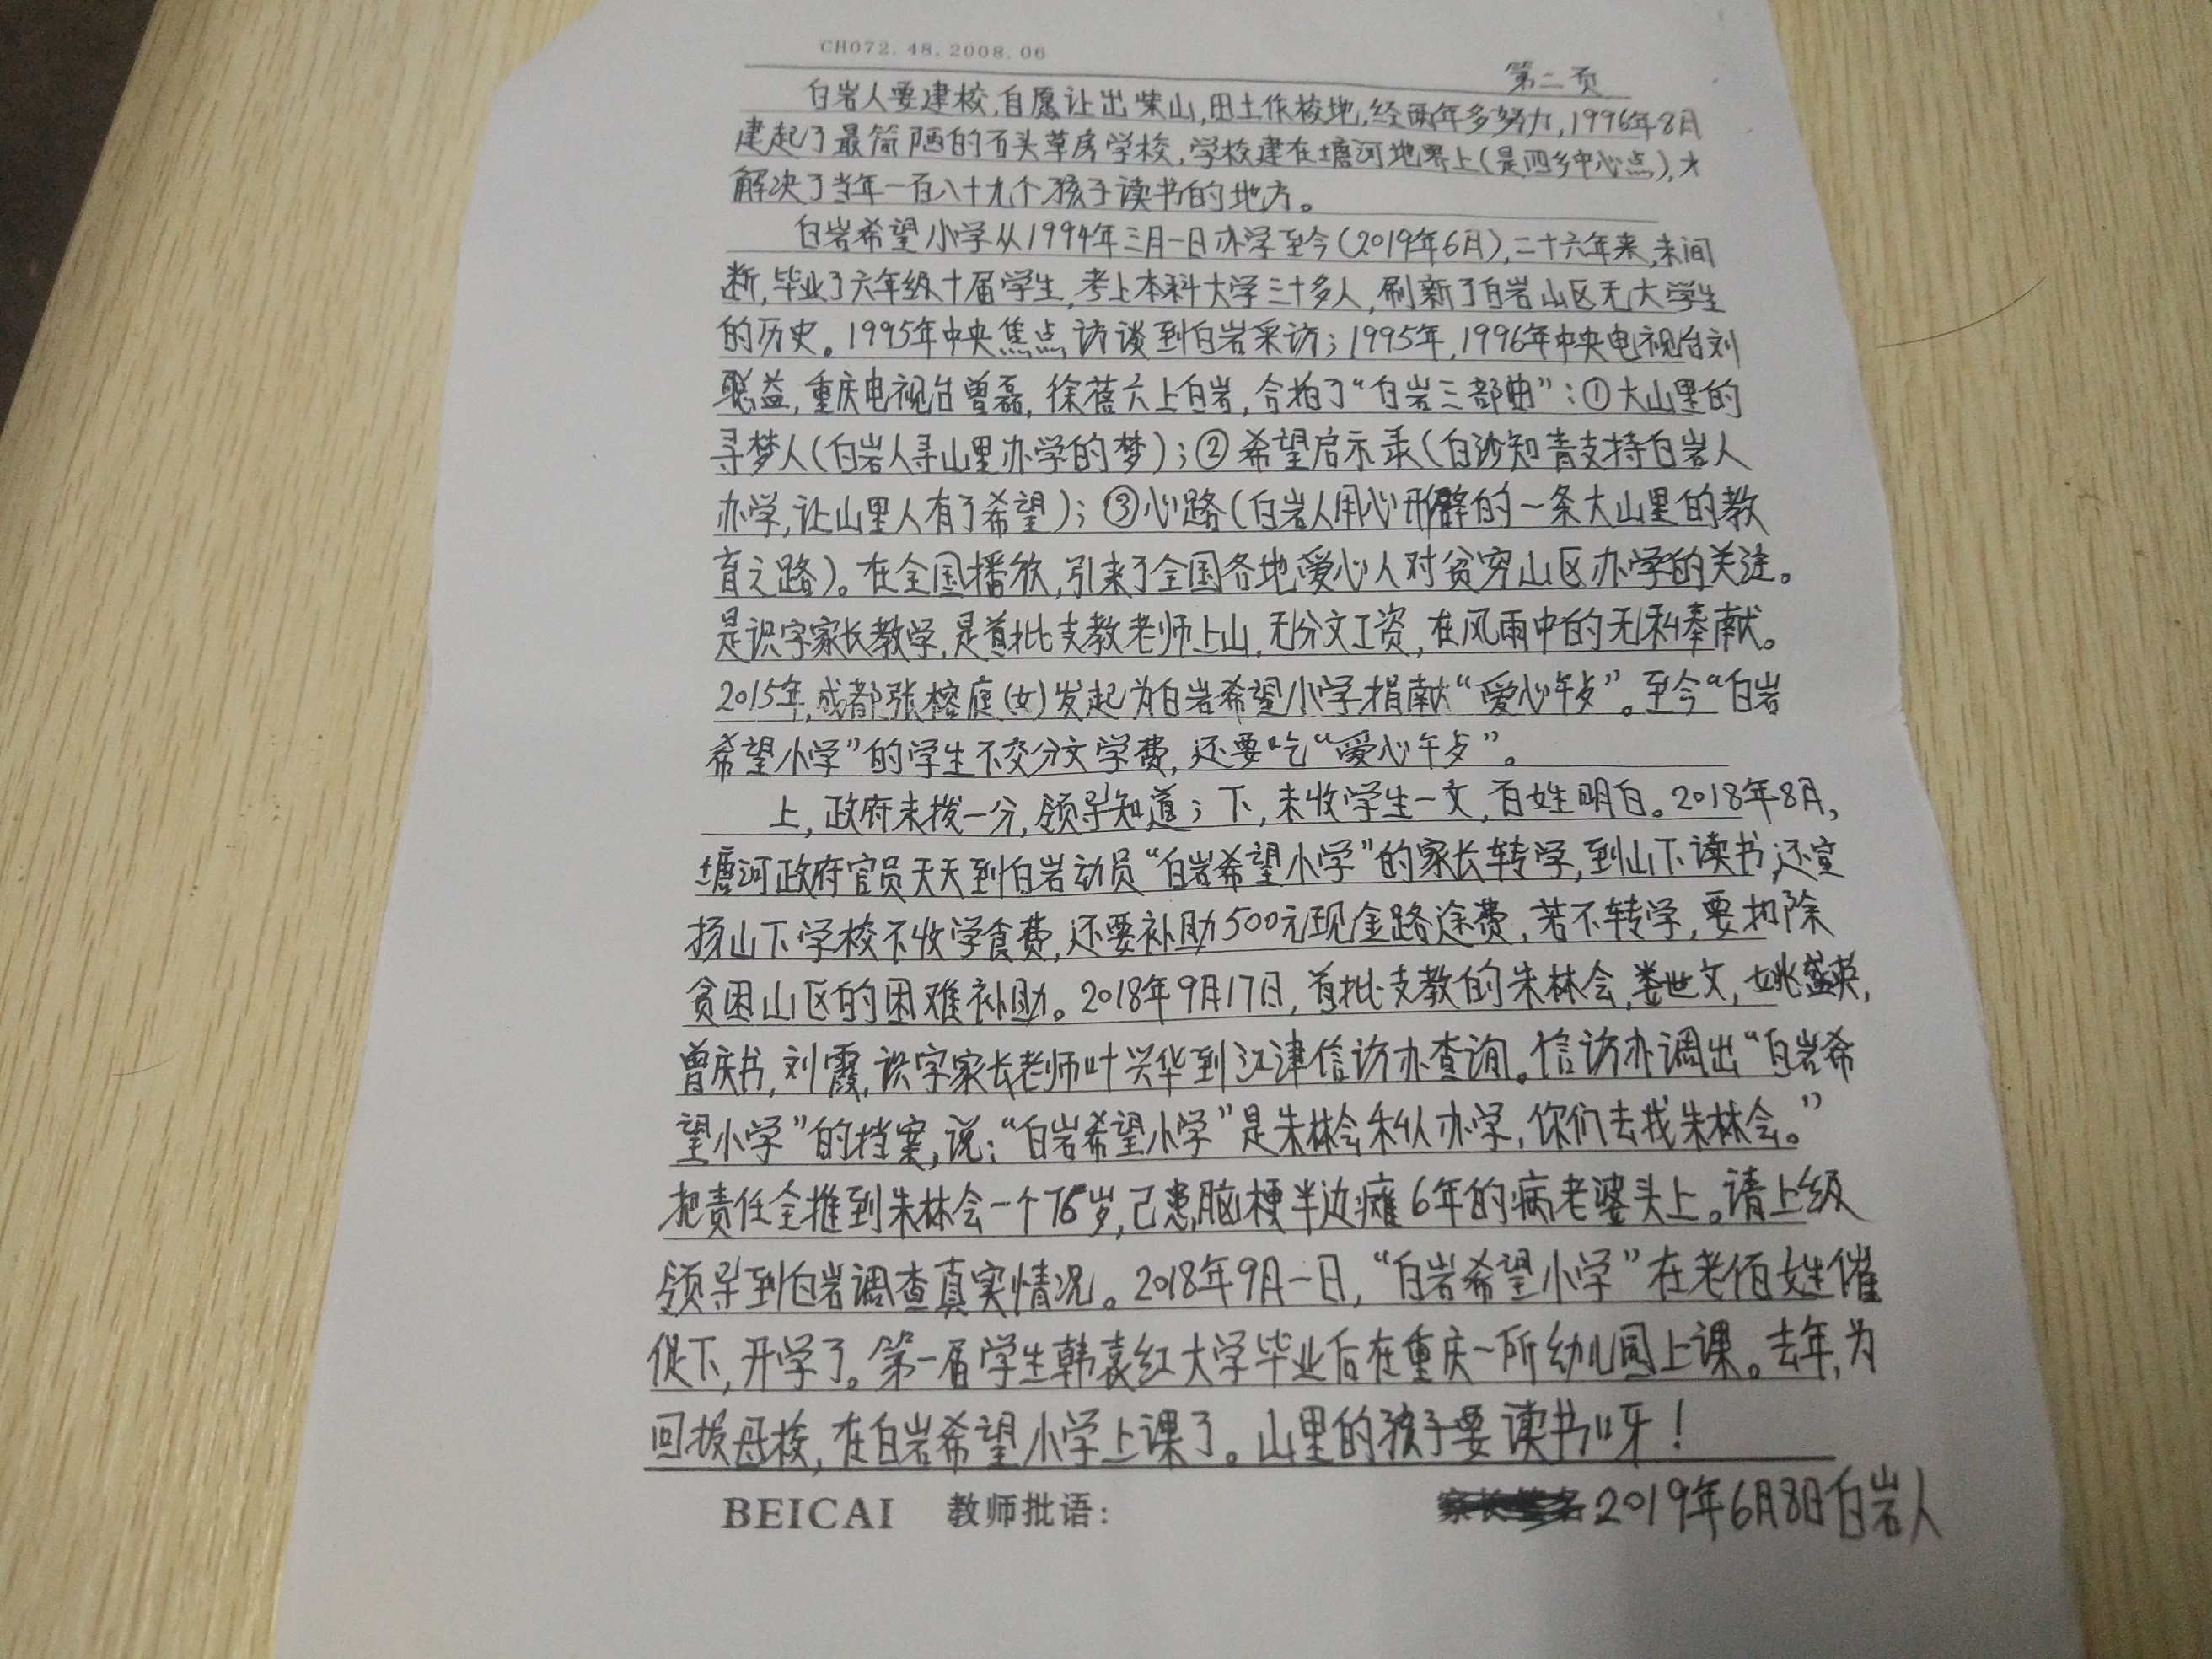 CH072.48.2008.06
第二页
白岩人要建校,自愿让出柴山,田土作校地,经两年多努力,1996年8月
建起了最简陋的石头草房学校,学校建在塘河地界上(是四乡中心点),才
解决了当年一百八十九个孩子读书的地方。
白岩希望小学从1994年三月一日办学至今(2019年6月),二十六年来,未间
断,毕业了六年级十届学生,考上本科大学三十多人,刷新了白岩山区无大学生
的历史。1995年中央焦点访谈到白岩采访;1995年,1996年中央电视台刘
聪益,重庆电视台曾磊,徐蓓六上白岩,合拍了“白岩三部曲”:①大山里的
寻梦人(白岩人寻山里办学的梦);②希望启示录(白沙知青支持白岩人
办学,让山里人有了希望);③心路(白岩人用心开辟的一条大山里的教
育之路)。在全国播放,引来了全国各地爱心人对贫穷山区办学的关注。
是识字家长教学,是首批支教老师上山,无分文工资,在风雨中的无私奉献。
2015年,成都张榕庭(女)发起为白岩希望小学捐献“爱心午歺”。至今“白岩
希望小学”的学生不交分文学费,还要吃“爱心午歺”。
上,政府未拨一分,领导知道;下,未收学生一文,百姓明白。2018年8月,
塘河政府官员天天到白岩动员“白岩希望小学”的家长转学,到山下读书,还宣
扬山下学校不收学食费,还要补助500元现金路途费,若不转学,要扣除
贫困山区的困难补助。2018年9月17日,首批支教的朱林会,娄世文,姚盛英,
曾庆书,刘霞,识字家长老师叶兴华到江津信访办查询。信访办调出“白岩希
望小学”的档案,说:“白岩希望小学”是朱林会私人办学,你们去找朱林会。”
把责任全推到朱林会一个76岁,已患脑梗半边瘫6年的病老婆头上。请上级
领导到白岩调查真实情况。2018年9月一日,“白岩希望小学”在老佰姓催
促下,开学了。第一届学生韩袁红大学毕业后在重庆一所幼儿园上课。去年,为
回报母校,在白岩希望小学上课了。山里的孩子要读书呀!
BEICAI 教师批语: 2019年6月8日白岩人